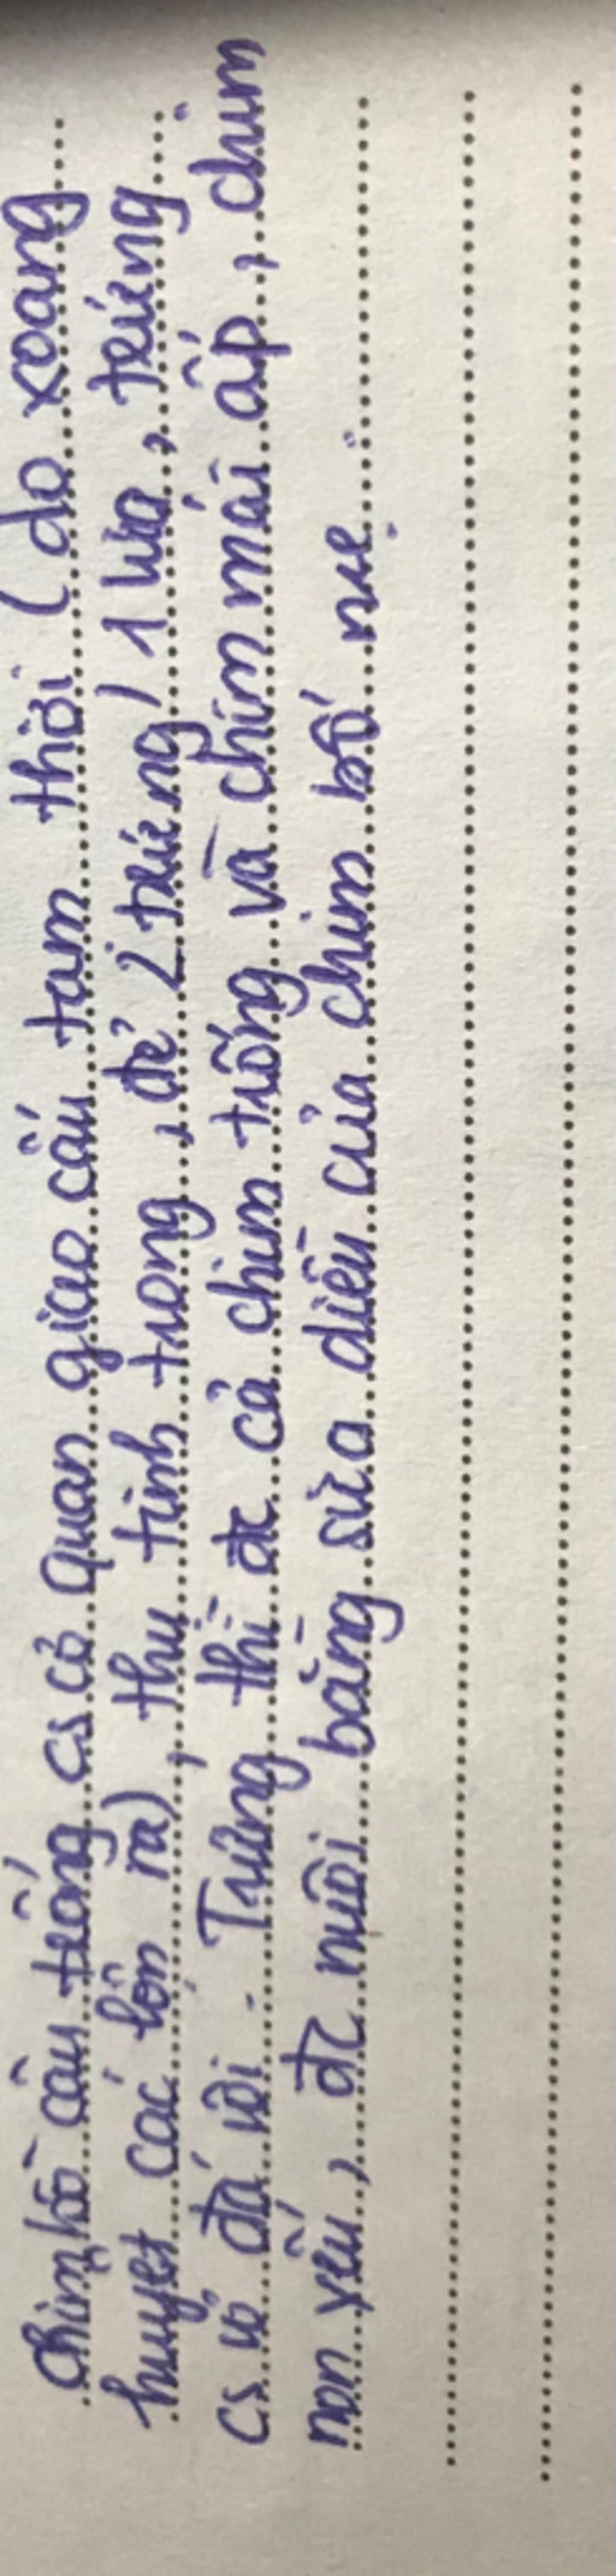 Chim bồ câu trống cs có quan giao cấu tam thời (do xoang
huyet các lộn ra), thụ tinh trong, đẻ 2 trứng / 1 lứa, trứng
cs vỏ đá vôi. Trứng thì đc cả chim trống và chim mái ấp, chim
non yếu, đc nuôi bằng sữa diều của chim bố mẹ.